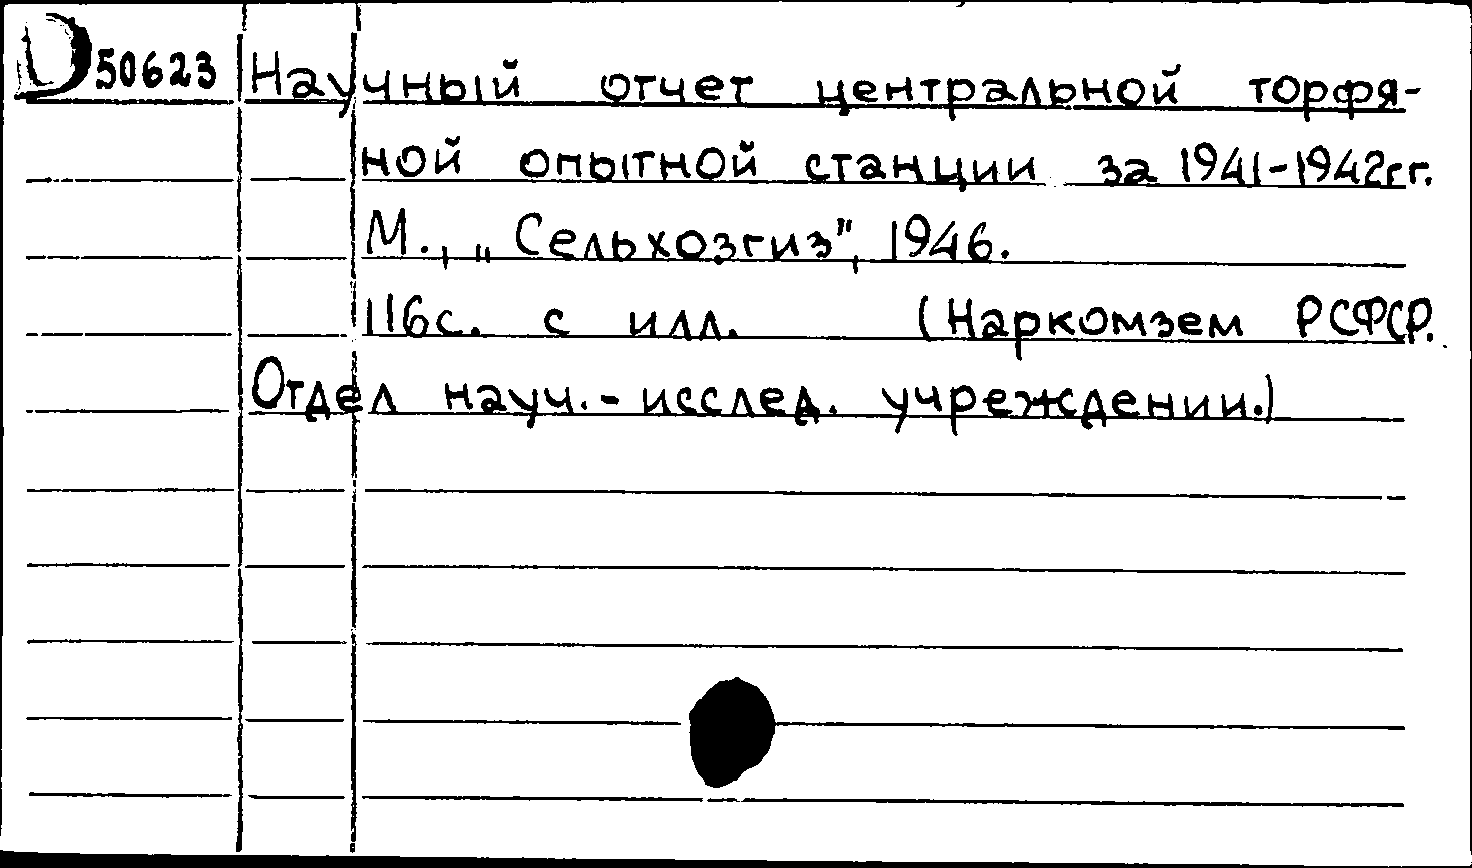 D50623 Научный отчет центральной торфя-
ной опытной станции за 1941-1942гг.
М., „Сельхозгиз", 1946.
116с. с илл. (Наркомзем РСФСР.
Отдел науч.-исслед. учреждении.)